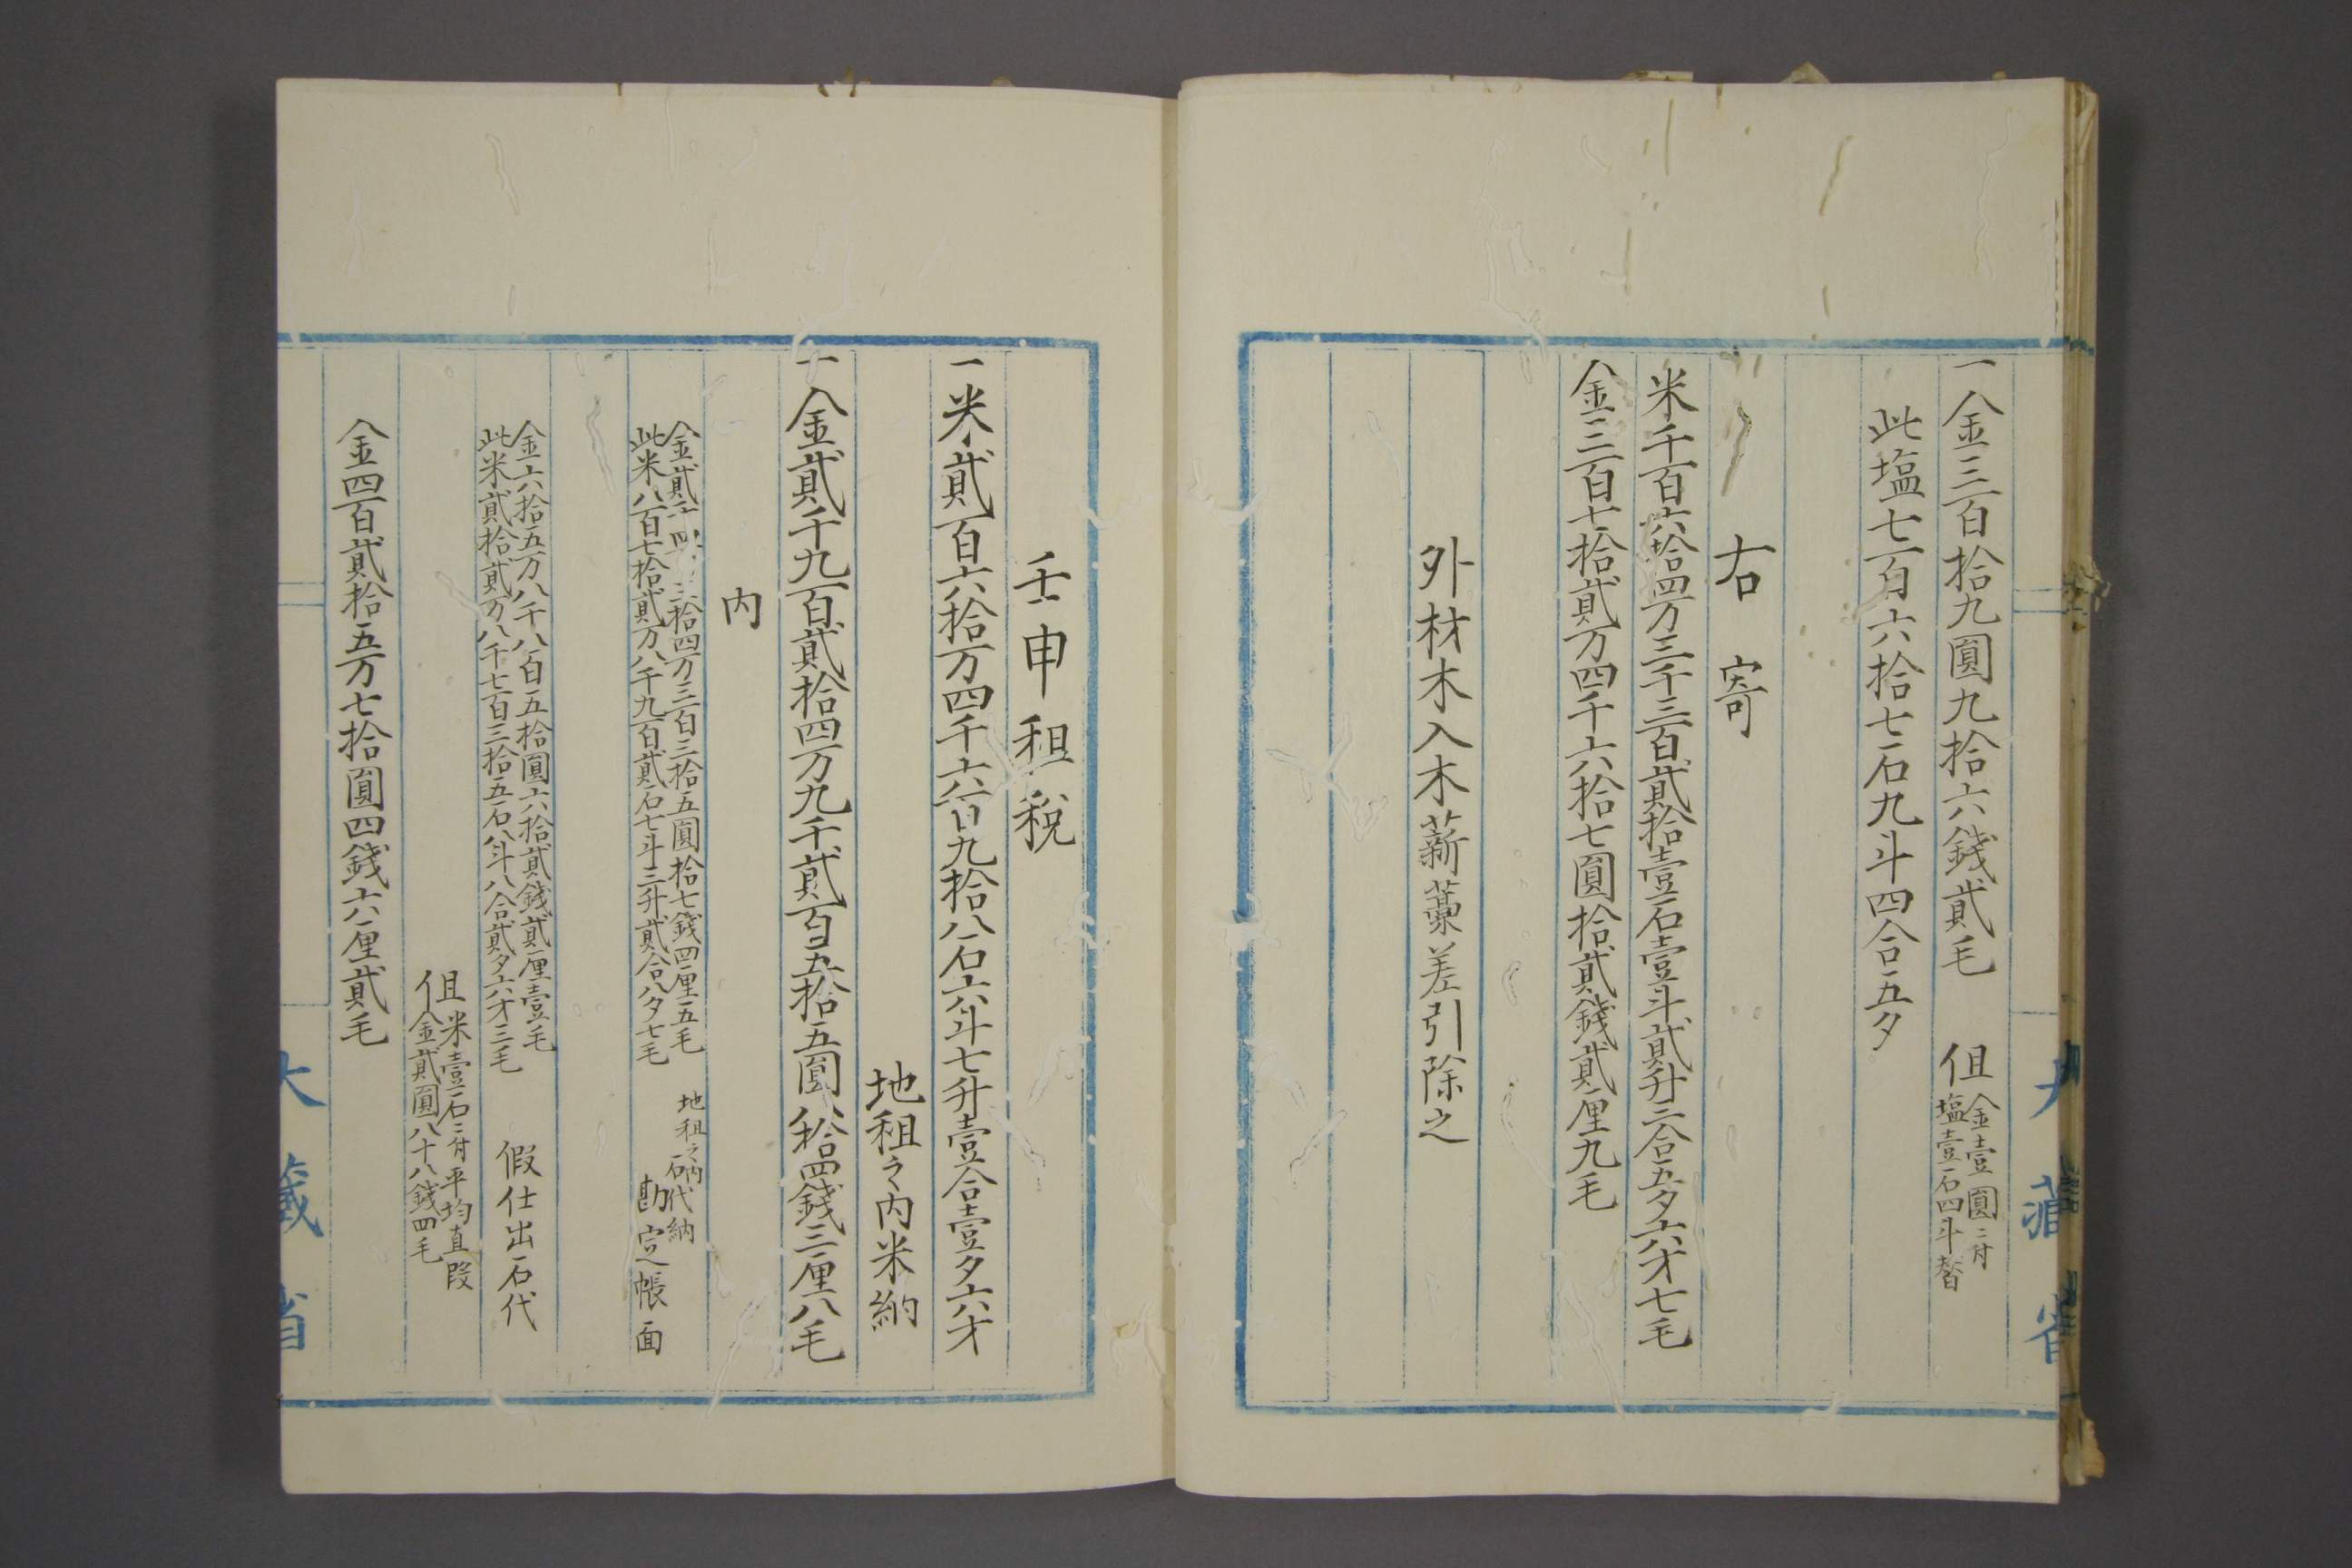 一金三百拾九圓九拾六錢貳毛
但
金壹圓ニ付
塩壹石四斗替
此塩七百六拾七石九斗四合五夕
右寄
米千百六拾四万三千三百貳拾壹石壹斗貳升三合五夕六才七毛
金三百七拾貳万四千六拾七圓拾貳錢貳厘九毛
外材木入木薪藁差引除之
壬申租税
一米貳百六拾万四千六百九拾八石六斗七升壹合壹夕六才
地租之内米納
一金貳千九百貳拾四万九千貳百五拾五圓拾四錢三厘八毛
内
金貳千四百三拾四万三百三拾五圓拾七錢四厘五毛
此米八百七拾貳万八千九百貳石七斗三升貳合八夕七毛
地租之内石代納
勘定帳面
金六拾五万八千八百五拾圓六拾貳錢貳厘壹毛
此米貳拾貳万八千七百三拾五石八斗八合貳夕六才三毛
假仕出石代
但
米壹石ニ付平均直段
金貳圓八十八錢四毛
金四百貳拾五万七拾圓四錢六厘貳毛
大藏省